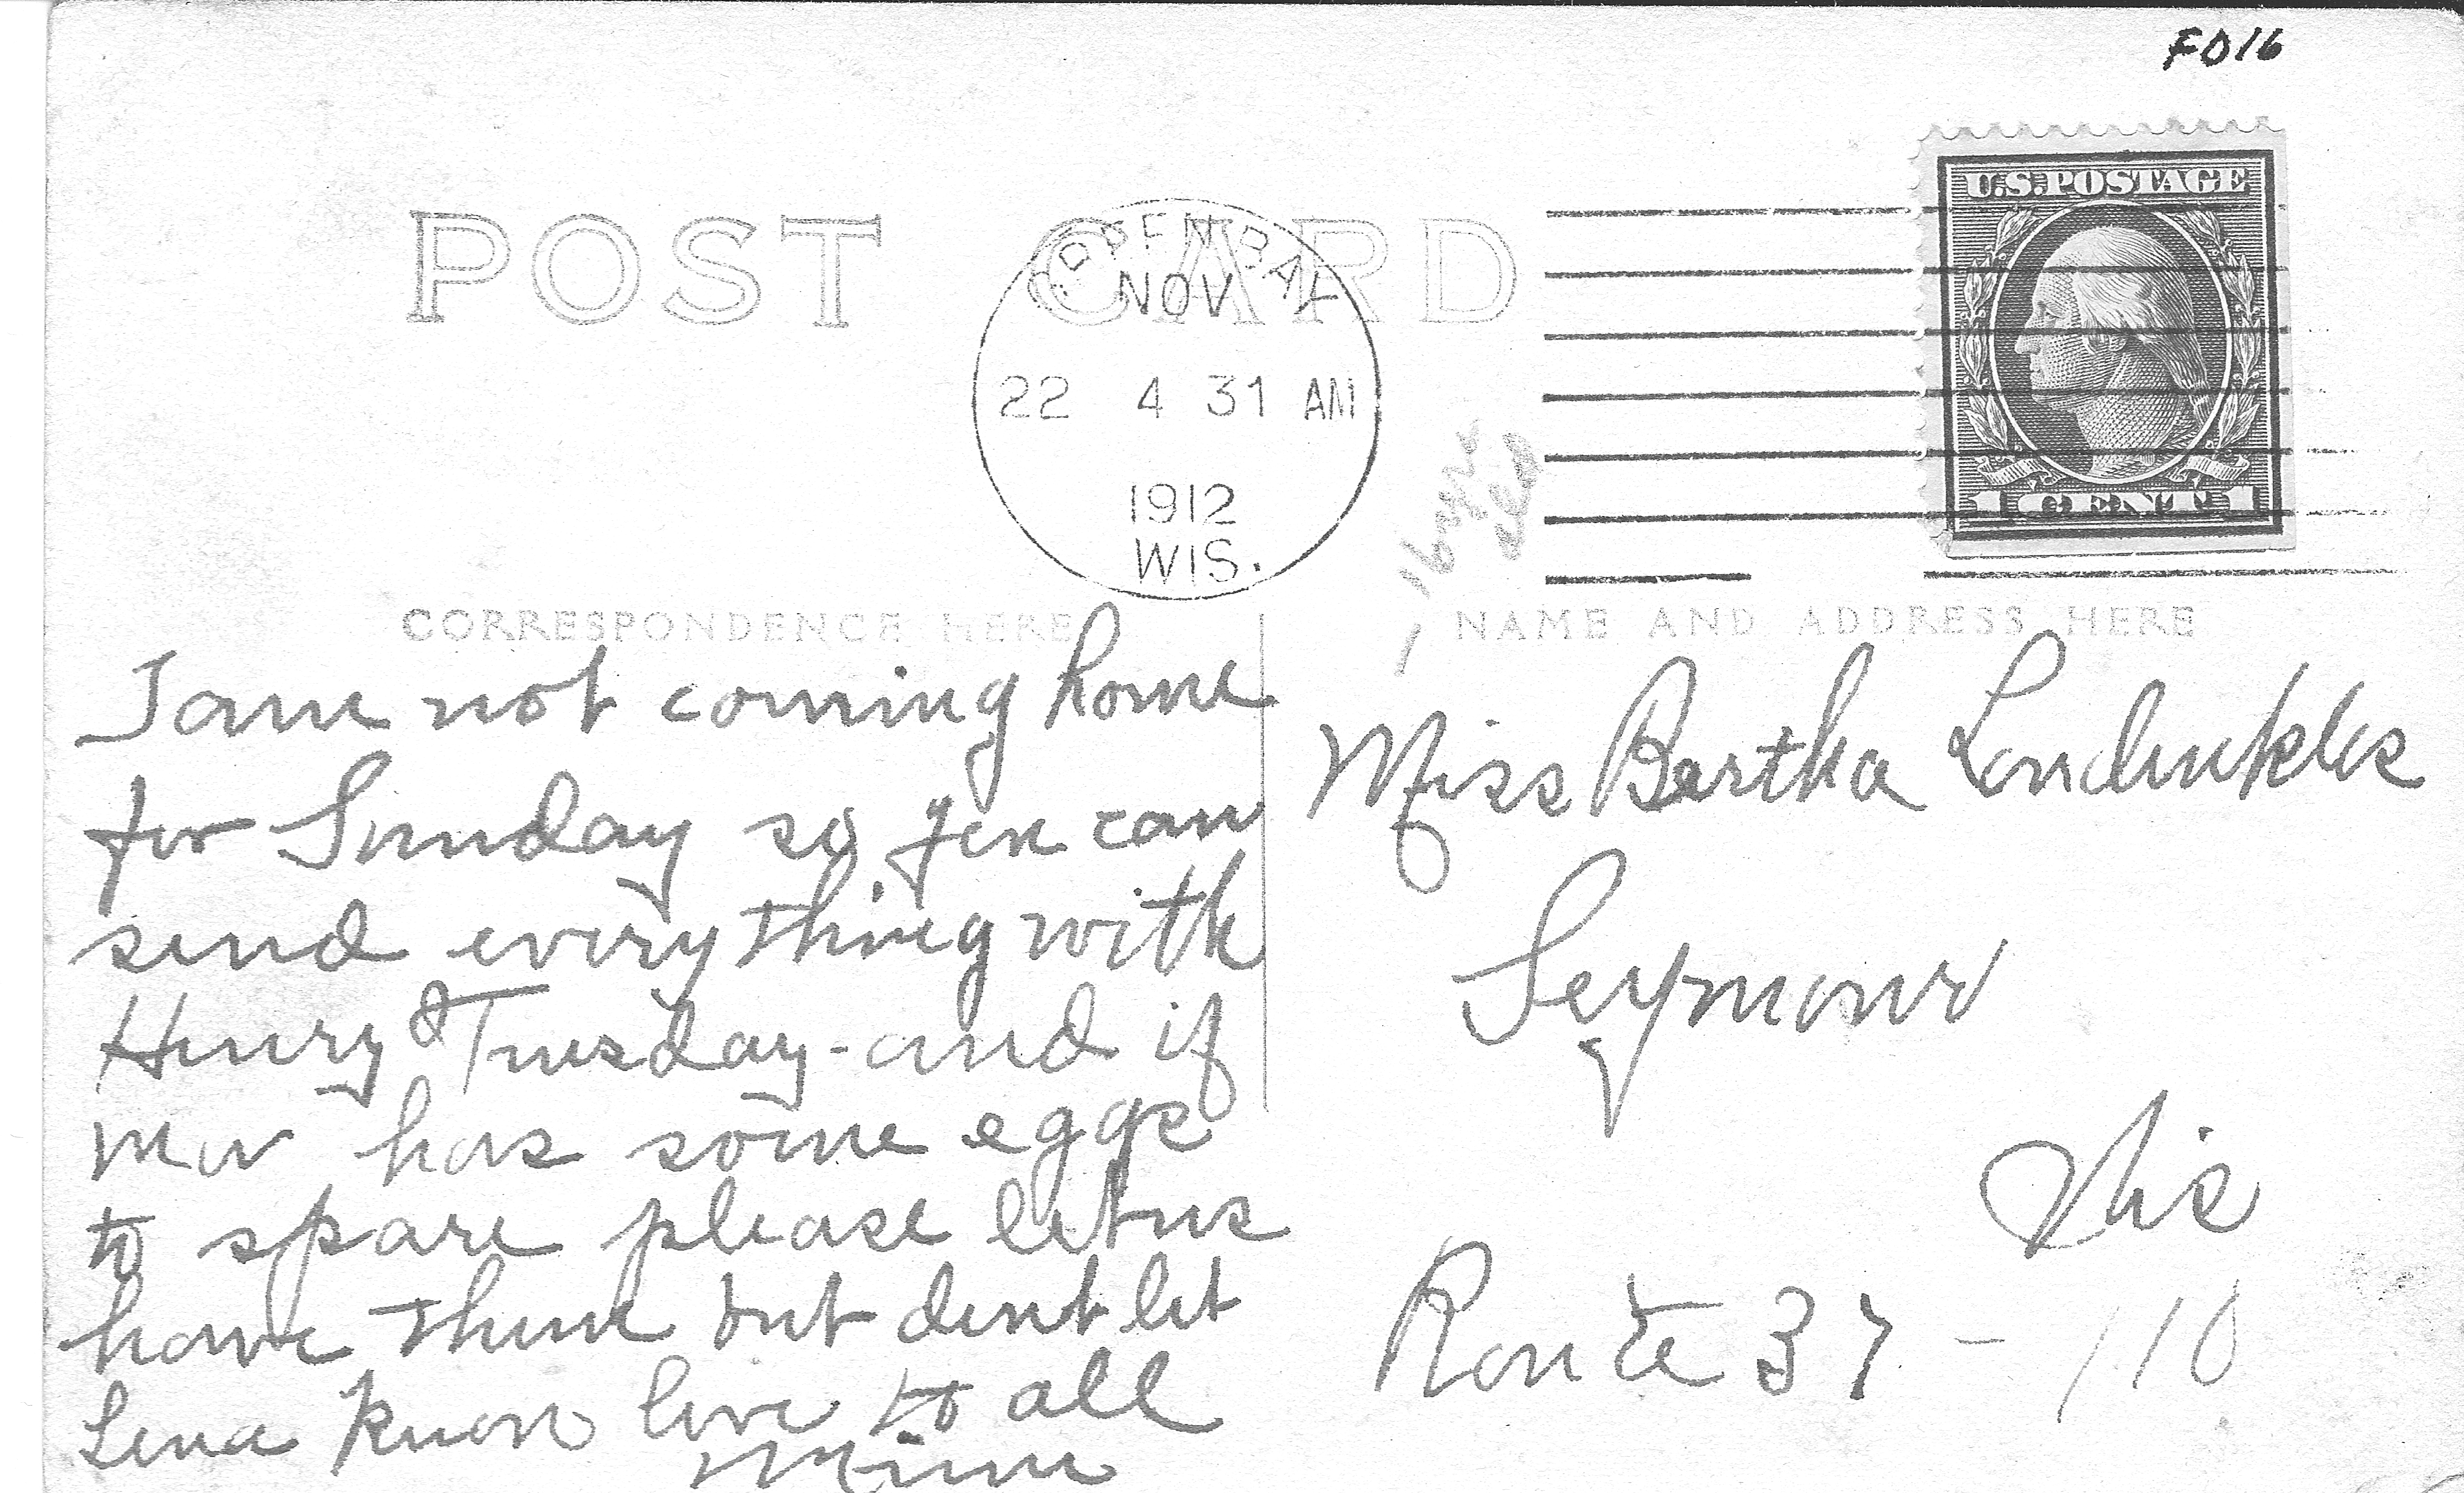 FD16
U.S. POSTAGE
POST CARD
NOV
22 4 31 AM
1912
WIS.
1 CENT 1
CORRESPONDENCE HERE
NAME AND ADDRESS HERE
I am not coming home
for Sunday so you can
send everything with
Henry Tuesday - and if
Mar has some eggs
to spare please let us
have them but dont let
Lena know love to all
Minn
Miss Bertha
Seymour
Wis
Route 37 - 110